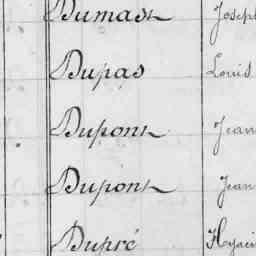 Dumast Joseph
Dupas Louis
Dupont Jean
Dupont Jean
Dupré Hyacin